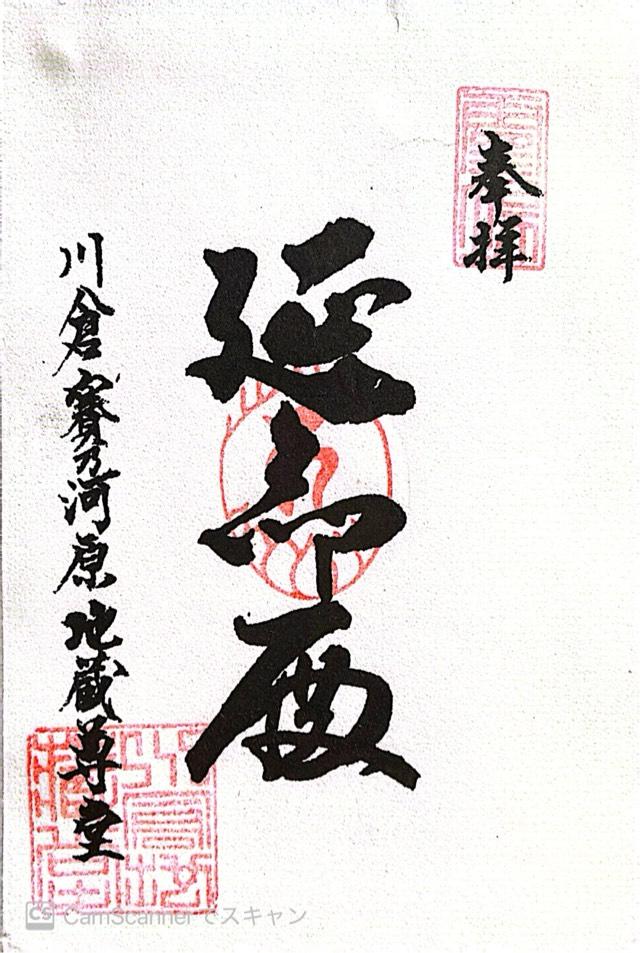 奉拝
延命殿
川倉賽乃河原地蔵尊堂
CS CamScanner でスキャン